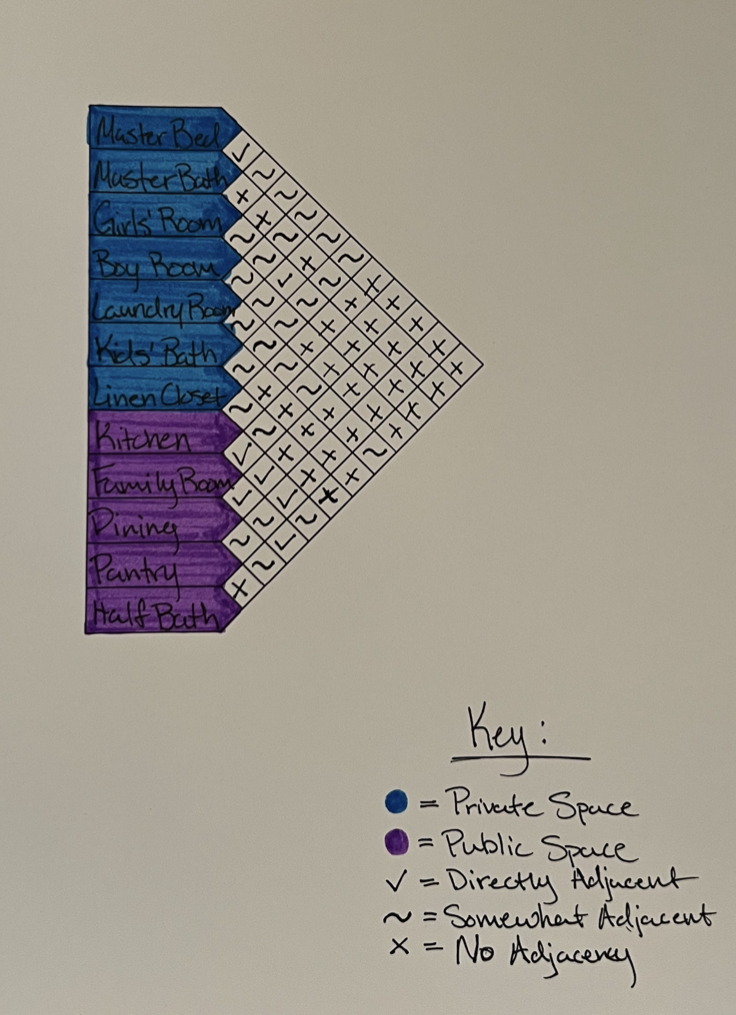 Master Bed
Master Bath
Girls' Room
Boy Room
Laundry Room
Kids' Bath
Linen Closet
Kitchen
Family Room
Dining
Pantry
Half Bath
Key:
= Private Space
= Public Space
✓ = Directly Adjacent
~ = Somewhat Adjacent
x = No Adjacency